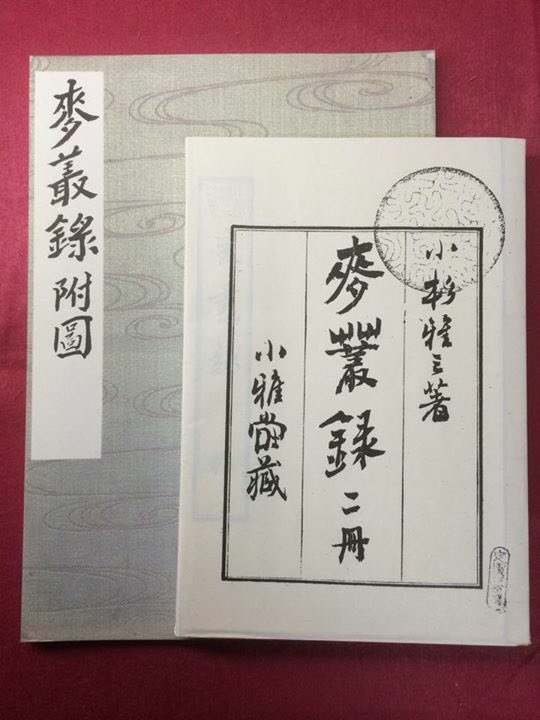 麥叢錄 附圖
小杉雅三著
麥叢録 二冊
小雅堂藏